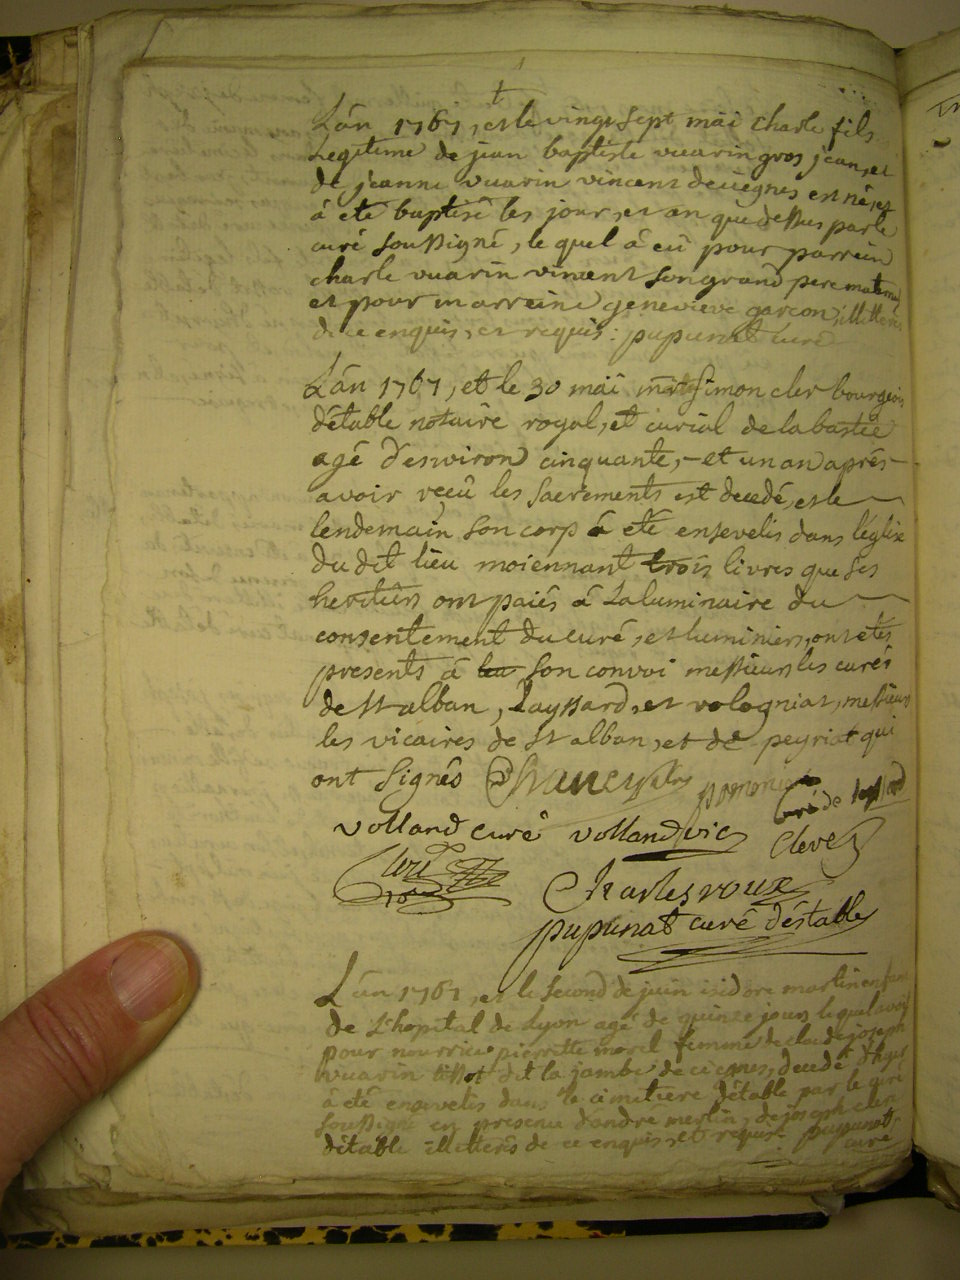 L'ân 1767, et le vingt sept mai charle fils
Legitime de jean baptiste vuarin gros jean, et
de jeanne vuarin vincent de ciegnes est né, et
â eté baptisé les jour, et an que dessus par le
curé soussigné, le quel â eû pour parrein
charle vuarin vincent son grand pere maternel
et pour marreine genevieve garcon, illitterés
de ce enquis, et requis. pupunat curé
L'ân 1767, et le 30 mai simon cler bourgeois
d'étable notaire royal, et curial de la bastie
agé d'environ cinquante, et un an aprés
avoir reçû les sacrements est decedé, et le
lendemain son corp â eté ensevelis dans l'église
du dit lieu moiennant trois livres que ses
heritiers ont paiés â La luminaire du
consentement du curé, et luminiers, ont etés
presents â son convoi messieurs les curés
de st alban, Layssard, et vologniat, messieurs
les vicaires de st alban, et de peyriat qui
ont signés
curé de
volland curé volland vic Cleve
Charles roux
pupunat curé d'éstable
L'ân 1767, et le second de juin isidore martin enfant
de L'hopital de Lyon agé de quinze jours le quel avoit
pour nourrice pierrette morel femme de claude joseph
vuarin tissot dit la jambe de ciegnes, decedé d'hyer
â eté ensevelis dans le cimitiere d'étable par le curé
soussigné en presence d'andré merlin, de joseph cler
d'étable illitterés de ce enquis, et requis. pupunat
curé